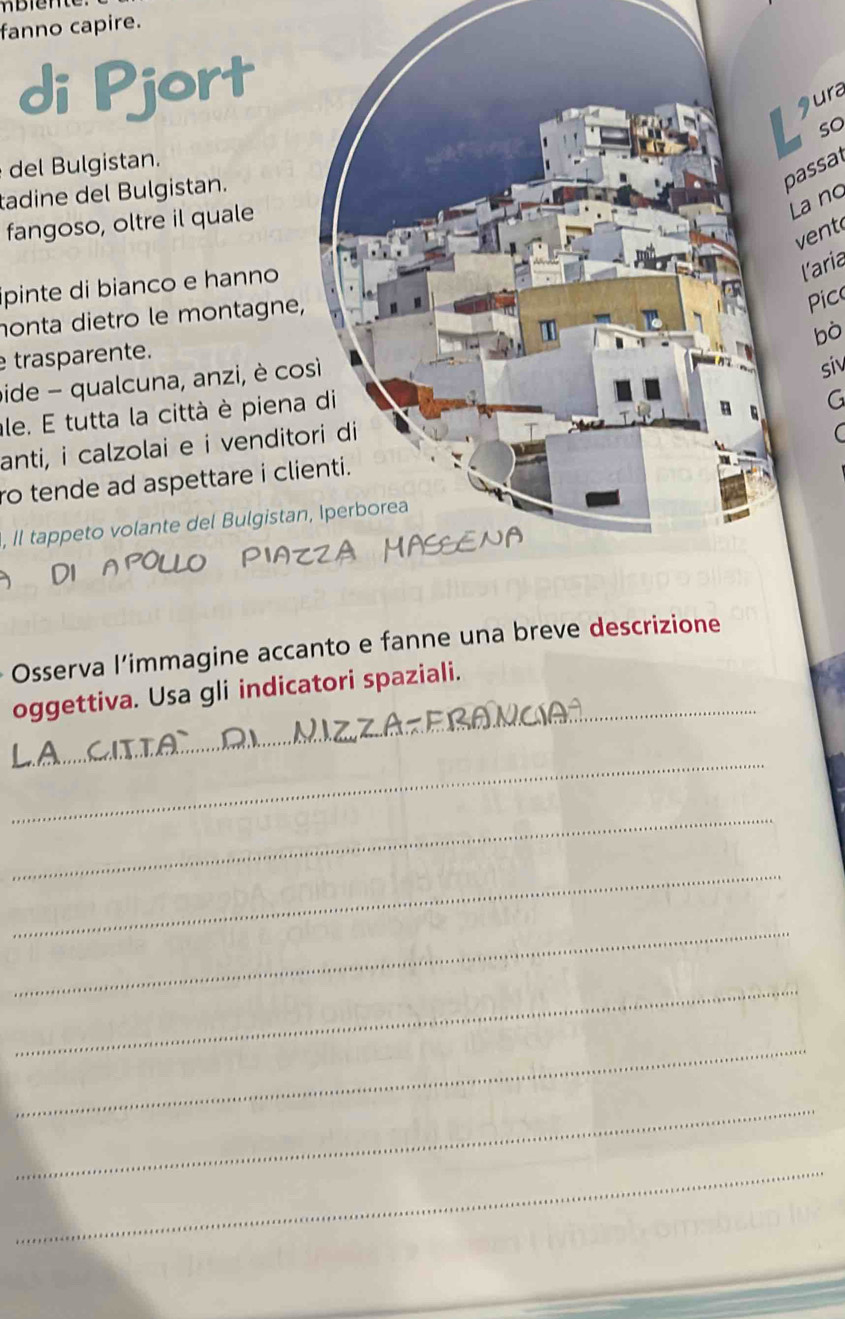 fanno capire.
di Pjort
del Bulgistan.
tadine del Bulgistan.
fangoso, oltre il quale
ipinte di bianco e hanno
onta dietro le montagne,
e trasparente.
ide – qualcuna, anzi, è così
ale. E tutta la città è piena di
anti, i calzolai e i venditori di
ro tende ad aspettare i clienti.
, Il tappeto volante del Bulgistan, Iperborea
A DI APOLLO PIAZZA MASSENA
Osserva l'immagine accanto e fanne una breve descrizione
oggettiva. Usa gli indicatori spaziali.
LA CITTA' DI NIZZA-FRANCIA
L'ura
so
passat
La no
vento
l'aria
Pico
bò
siv
G